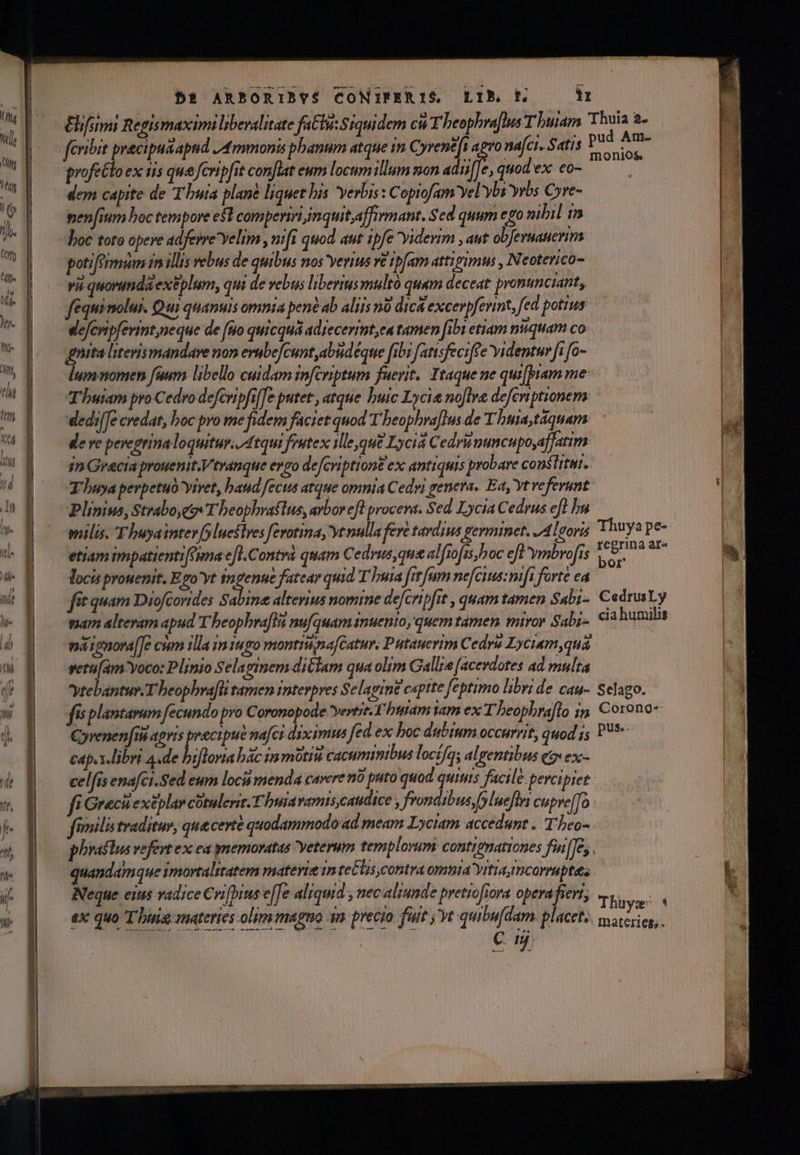 DE ARBORIBVS CONIFERIS. LIB. I. 11
ſcribit præcipuā apud Ammonis phanum atque in Cyrenēſi agro naſci. Satis
Thuia a-
pud Am-
monios.
profecto ex iis quæ ſcripſit conſtat eum locum illum non adiiſſe, quod ex eo-
dem capite de Thuia planè liquet his verbis: Copioſam vel vbi vrbs Cyre-
nenſium hoc tempore eſt comperiri, inquit, affirmant. Sed quum ego nihil in
hoc toto opere adferre velim, niſi quod aut ipſe viderim, aut obſeruauerim
potiſſimùm in illis rebus de quibus nos verius rē ipſam attigimus, Neoterico-
rū quorundā exēplum, qui de rebus liberius multò quam deceat pronunciant,
ſequi nolui. Qui quanuis omnia penè ab aliis nō dicā excerpſerint, ſed potius
deſcripſerint, neque de ſuo quicquā adiecerint, ea tamen ſibi etiam nūquam co-
gnita literis mandare non erubeſcunt, abūdéque ſibi ſatisfeciſſe videntur ſi ſo-
lum nomen ſuum libello cuidam inſcriptum fuerit. Itaque ne quiſpiam me
Thuiam pro Cedro deſcripſiſſe putet, atque huic Lyciæ noſtræ deſcriptionem
dediſſe credat, hoc pro me fidem faciet quod Theophraſtus de Thuia, tāquam
de re peregrina loquitur. Atqui frutex ille, quē Lyciā Cedrū nuncupo, affatim
in Græcia prouenit. Vtranque ergo deſcriptionē ex antiquis probare conſtitui.
Thuya perpetuò viret, haud ſecus atque omnia Cedri genera. Ea, vt referunt
Plinius, Strabo, & Theophraſtus, arbor eſt procera. Sed Lycia Cedrus eſt hu
milis. Thuya inter ſylueſtres ſerotina, vt nulla ferè tardius germinet. Algoris
Thuya pe-
regrina ar-
bor
etiam impatientiſſima eſt. Contrà quam Cedrus, quæ alſioſis, hoc eſt vmbroſis
locis prouenit. Ego vt ingenue fatear quid Thuia ſit ſum neſcius: niſi forte ea
ſit quam Dioſcorides Sabinæ alterius nomine deſcripſit, quam tamen Sabi-
Cedrus Ly
cia humilis
nam alteram apud Theophraſtū nuſquam inuenio, quem tamen miror Sabi-
nā ignoraſſe cùm illa in iugo montiū naſcatur. Putauerim Cedrū Lyciam, quā
vetuſam voco: Plinio Selaginem dictam qua olim Galliæ ſacerdotes ad multa
vtebantur. Theophraſti tamen interpres Selaginē capite ſeptimo libri de cau-
Selago.
ſis plantarum ſecundo pro Coronopode vertit. Thuiam iam ex Theophraſto in
Corono-
pus.
Cyrenenſiū agris præcipuè naſci diximus ſed ex hoc dubium occurrit, quod is
cap. 1. libri 4. de hiſtoria hāc in mōtiū cacuminibus locíſq; algentibus & ex-
celſis enaſci. Sed eum locū menda carere nō puto quod quiuis facilè percipiet
ſi Græcū exēplar cōtulerit. Thuia ramis, caudice, frondibus, ſylueſtri cupreſſo
ſimilis traditur, quæ certè quodammodo ad meam Lyciam accedunt. Theo-
phraſtus refert ex ea memoratas veterum templorum contignationes fuiſſes,
quandámque immortalitatem materiæ in tectis, contra omnia vitia, incorruptæ.
Neque eius radice Criſpius eſſe aliquid, nec aliunde pretioſiora opera fieri,
Thuyæ
materies.
ex quo Thuiæ materies olim magno in precio fuit, vt quibuſdam placet.
C iij